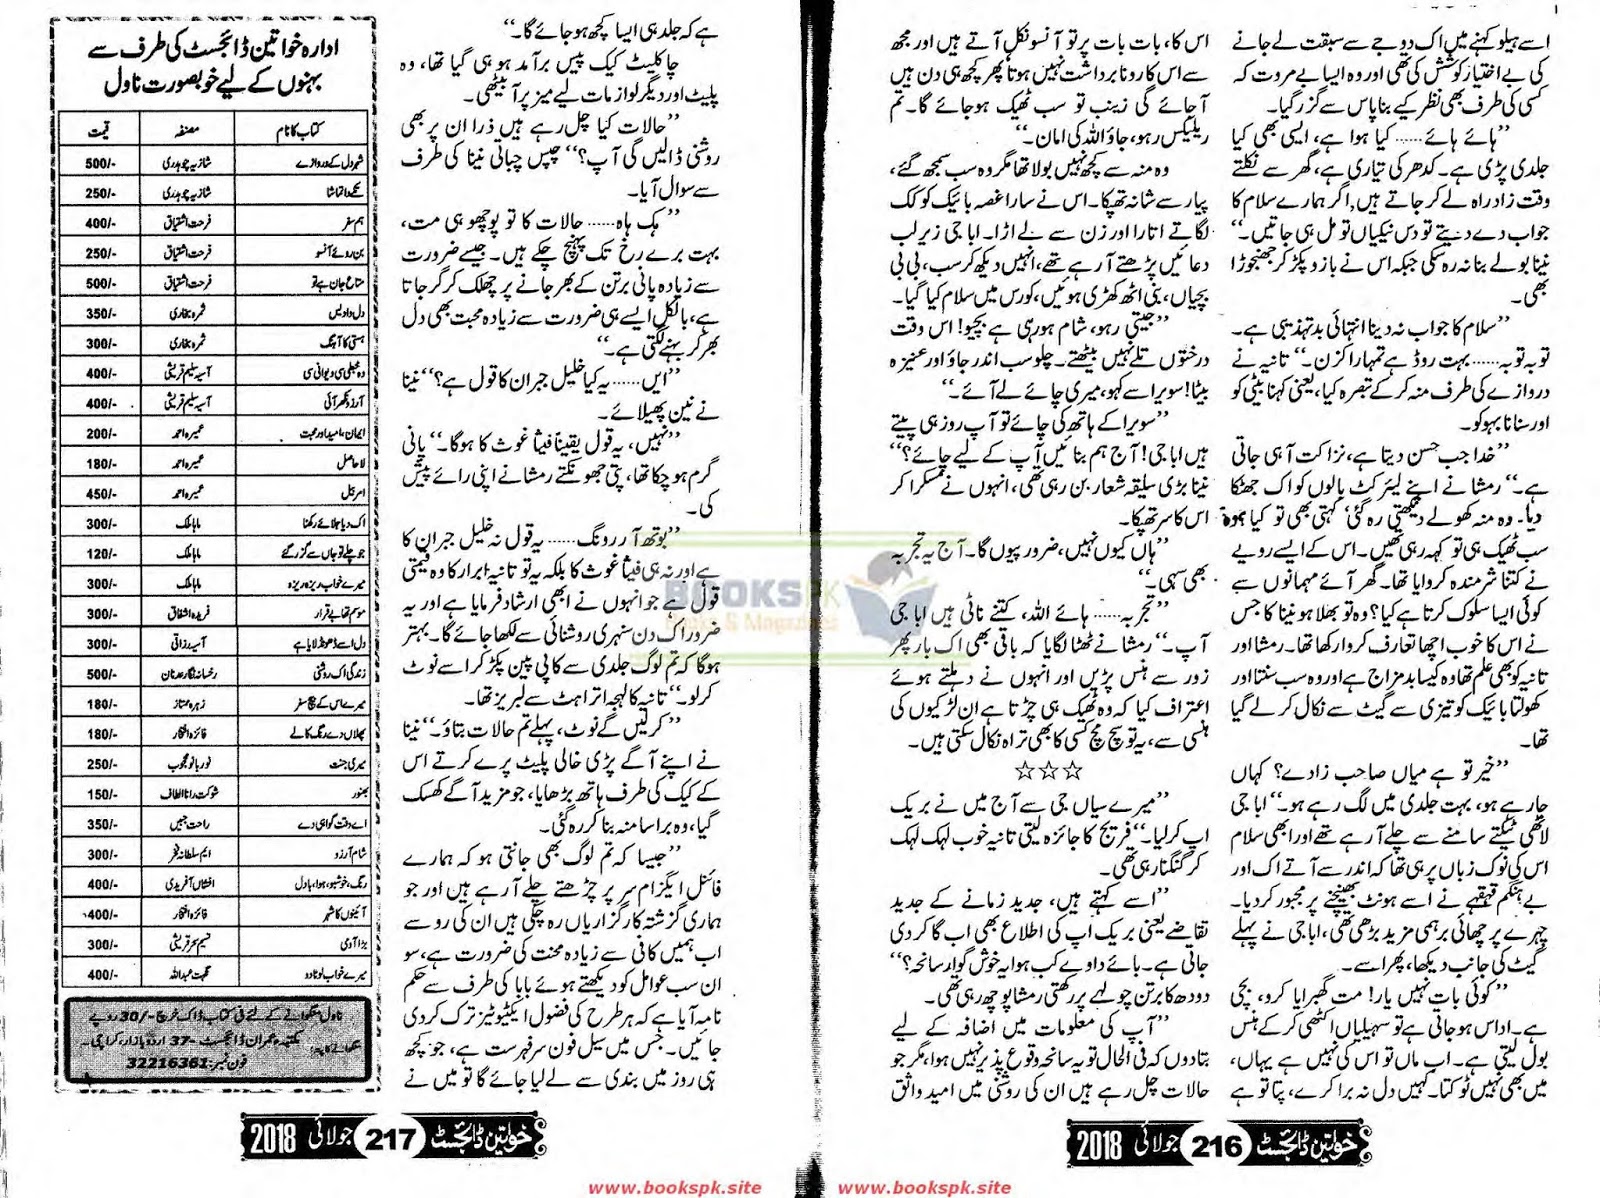 اسے ہیلو کہنے میں اک دوجے سے سبقت لے جانے
کی بے اختیار کوشش کی تھی اور وہ ایسا بے مروت کہ
کسی کی طرف بھی نظر کیے بنا پاس سے گزر گیا۔
”ہائے ہائے...... کیا ہوا ہے، ایسی بھی کیا
جلدی پڑی ہے۔ کدھر کی تیاری ہے، گھر سے نکلتے
وقت زاد راہ لے کر جاتے ہیں, اگر ہمارے سلام کا
جواب دے دیتے تو دس نیکیاں تو مل ہی جاتیں۔“
نینا بولے بنا نہ رہ سکی جبکہ اس نے بازو پکڑ کر جھنجوڑا
بھی۔
”سلام کا جواب نہ دینا انتہائی بد تہذیبی ہے۔
توبہ توبہ...... بہت روڈ ہے تمہارا کزن۔“ تانیہ نے
دروازے کی طرف منہ کر کے تبصرہ کیا، یعنی کہنا بیٹی کو
اور سنانا بہو کو۔
”خدا جب حسن دیتا ہے، نزاکت آ ہی جاتی
ہے۔“ رمشا نے اپنے لیئر کٹ بالوں کو اک جھٹکا
دیا۔ وہ منہ کھولے دیکھتی رہ گئی‘ کہتی بھی تو کیا ہوہ
سب ٹھیک ہی تو کہہ رہی تھیں۔ اس کے ایسے رویے
نے کتنا شرمندہ کروایا تھا۔ گھر آئے مہمانوں سے
کوئی ایسا سلوک کرتا ہے کیا؟ وہ تو بھلا ہو نینا کا جس
نے اس کا خوب اچھا تعارف کروا رکھا تھا۔ رمشا اور
تانیہ کو بھی علم تھا وہ کیسا بد مزاج ہے اور وہ سب سنتا اور
کھولتا بائیک کو تیزی سے گیٹ سے نکال کر لے گیا
تھا۔
”خیر تو ہے میاں صاحب زادے؟ کہاں
جا رہے ہو، بہت جلدی میں لگ رہے ہو۔“ ابا جی
لاٹھی ٹیکتے سامنے سے چلے آ رہے تھے اور ابھی سلام
اس کی نوک زباں پر ہی تھا کہ اندر سے آتے اک اور
بے ہنگم قہقہے نے اسے ہونٹ بھینچنے پر مجبور کر دیا۔
چہرے پر چھائی برہمی مزید بڑھی تھی، ابا جی نے پہلے
گیٹ کی جانب دیکھا، پھر اسے۔
”کوئی بات نہیں یار! مت گھبرایا کرو، بچی
ہے۔ اداس ہو جاتی ہے تو سہیلیاں اکٹھی کر کے ہنس
بول لیتی ہے۔ اب ماں تو اس کی نہیں ہے یہاں،
میں بھی نہیں ٹوکتا۔ کہیں دل نہ برا کرے، پتا تو ہے
اس کا، بات بات پر تو آنسو نکل آتے ہیں اور مجھ
سے اس کا رونا برداشت نہیں ہوتا پھر کچھ ہی دن ہیں
آ جائے گی زینب تو سب ٹھیک ہو جائے گا۔ تم
ریلیکس رہو، جاؤ اللہ کی امان۔“
وہ منہ سے کچھ نہیں بولا تھا مگر وہ سب سمجھ گئے،
پیار سے شانہ تھپکا۔ اس نے سارا غصہ بائیک کو کک
لگاتے اتارا اور زن سے لے اڑا۔ ابا جی زیر لب
دعائیں پڑھتے آ رہے تھے، انہیں دیکھ کر سب، بی بی
بچیاں، بنی اٹھ کھڑی ہوئیں، کورس میں سلام کیا گیا۔
”جیتی رہو، شام ہو رہی ہے بچیو! اس وقت
درختوں تلے نہیں بیٹھتے۔ چلو سب اندر جاؤ اور عنیزہ
بیٹا! سویرا سے کہو، میری چائے لے آئے۔“
”سویرا کے ہاتھ کی چائے تو آپ روز ہی پیتے
ہیں ابا جی! آج ہم بنائیں آپ کے لیے چائے؟“
نینا بڑی سلیقہ شعار بن رہی تھی، انہوں نے مسکرا کر
اس کا سر تھپکا۔
”ہاں کیوں نہیں، ضرور پیوں گا۔ آج یہ تجربہ
بھی سہی۔“
”تجربہ...... ہائے اللہ، کتنے ناٹی ہیں ابا جی
آپ۔“ رمشا نے ٹھٹا لگایا کہ باقی بھی اک بار پھر
زور سے ہنس پڑیں اور انہوں نے دہلتے ہوئے
اعتراف کیا کہ وہ ٹھیک ہی چڑتا ہے ان لڑکیوں کی
ہنسی سے، یہ تو سچ مچ کسی کا بھی تراہ نکال سکتی ہیں۔
☆☆☆
”میرے سیاں جی سے آج میں نے بریک
اپ کر لیا۔“ فریج کا جائزہ لیتی تانیہ خوب لہک لہک
کر گنگنا رہی تھی۔
”اسے کہتے ہیں، جدید زمانے کے جدید
تقاضے یعنی بریک اپ کی اطلاع بھی اب گا کر دی
جاتی ہے۔ بائے داوے کب ہوا یہ خوش گوار سانحہ؟“
دودھ کا برتن چولہے پر رکھتی رمشا پوچھ رہی تھی۔
”آپ کی معلومات میں اضافہ کے لیے
بتا دوں کہ فی الحال تو یہ سانحہ وقوع پذیر نہیں ہوا، مگر جو
حالات چل رہے ہیں ان کی روشنی میں امید واثق
خواتین ڈائجسٹ 216 جولائی 2018
ہے کہ جلد ہی ایسا کچھ ہو جائے گا۔“
چاکلیٹ کیک پیس برآمد ہو ہی گیا تھا، وہ
پلیٹ اور دیگر لوازمات لیے میز پر آ بیٹھی۔
”حالات کیا چل رہے ہیں ذرا ان پر بھی
روشنی ڈالیں گی آپ؟“ چپس چباتی نینا کی طرف
سے سوال آیا۔
”ہک ہاہ...... حالات کا تو پوچھو ہی مت،
بہت برے رخ تک پہنچ چکے ہیں۔ جیسے ضرورت
سے زیادہ پانی برتن کے بھر جانے پر چھلک کر گر جاتا
ہے، بالکل ایسے ہی ضرورت سے زیادہ محبت بھی دل
بھر کر بہنے لگتی ہے۔“
”ایں...... یہ کیا خلیل جبران کا قول ہے؟“ نینا
نے نین پھیلائے۔
”نہیں، یہ قول یقیناً فیثا غوث کا ہو گا۔“ پانی
گرم ہو چکا تھا، پتی جھونکتے رمشا نے اپنی رائے پیش
کی۔
”بوتھ آر رونگ...... یہ قول نہ خلیل جبران کا
ہے اور نہ ہی فیثا غوث کا بلکہ یہ تو تانیہ ابرار کا وہ قیمتی
قول ہے جو انہوں نے ابھی ارشاد فرمایا ہے اور یہ
ضرور اک دن سنہری روشنائی سے لکھا جائے گا۔ بہتر
ہو گا کہ تم لوگ جلدی سے کاپی پین پکڑ کر اسے نوٹ
کر لو۔“ تانیہ کا لہجہ اتراہٹ سے لبریز تھا۔
”کر لیں گے نوٹ، پہلے تم حالات بتاؤ۔“ نینا
نے اپنے آگے پڑی خالی پلیٹ پرے کرتے اس
کے کیک کی طرف ہاتھ بڑھایا، جو مزید آگے کھسک
گیا، وہ برا سا منہ بنا کر رہ گئی۔
”جیسا کہ تم لوگ بھی جانتی ہو کہ ہمارے
فائنل ایگزام سر پر چڑھتے چلے آ رہے ہیں اور جو
ہماری گزشتہ کارگزاریاں رہ چکی ہیں ان کی رو سے
اب ہمیں کافی سے زیادہ محنت کی ضرورت ہے، سو
ان سب عوامل کو دیکھتے ہوئے بابا کی طرف سے حکم
نامہ آیا ہے کہ ہر طرح کی فضول ایکٹیوٹیز ترک کر دی
جائیں۔ جس میں سیل فون سر فہرست ہے، جو کچھ
ہی روز میں بندی سے لے لیا جائے گا تو میں نے
ادارہ خواتین ڈائجسٹ کی طرف سے
بہنوں کے لیے خوبصورت ناول
کتاب کا نام مصنفہ قیمت
شہر دل کے دروازے شازیہ چوہدری 500/-
شازیہ چوہدری 250/-
ہم سفر فرحت اشتیاق 400/-
بن روئے آنسو فرحت اشتیاق 250/-
متاع جان ہے تو فرحت اشتیاق 500/-
ثمرہ بخاری 350/-
ہستی کا آہنگ ثمرہ بخاری 300/-
وہ خبطی سی دیوانی سی آسیہ سلیم قریشی 400/-
آرزو نکھر آئی آسیہ سلیم قریشی 400/-
ایمان، امید اور محبت عمیرہ احمد 200/-
لا حاصل عمیرہ احمد 180/-
امر بیل عمیرہ احمد 450/-
اک دیا جلائے رکھنا ماہا ملک 300/-
جو چلے تو جاں سے گزر گئے ماہا ملک 120/-
میرے خواب ریزہ ریزہ ماہا ملک 300/-
موسم تھا بے قرار فریدہ اشفاق 300/-
دل اسے ڈھونڈ لایا ہے آسیہ رزاقی 300/-
زندگی اک روشنی رخسانہ نگار عدنان 500/-
میرے اس کے بیچ سفر زہرہ ممتاز 180/-
پھلاں دے رنگ کالے فائزہ افتخار 180/-
میری جنت نور بانو محجوب 250/-
بھنور شوکت رانا الطاف 150/-
اے وقت گواہی دے راحت جبیں 350/-
شام آرزو ایم سلطانہ فخر 300/-
رنگ، خوشبو، ہوا، بادل افشاں آفریدی 400/-
آئینوں کا شہر فائزہ افتخار 400/-
بڑا آدمی نسیم سحر قریشی 300/-
میرے خواب لوٹا دو نگہت عبداللہ 400/-
ناول منگوانے کے لئے فی کتاب ڈاک خرچ -/30 روپے
منگوانے کا پتہ: مکتبہ عمران ڈائجسٹ -37 اردو بازار، کراچی۔
فون نمبر: 32216361
خواتین ڈائجسٹ 217 جولائی 2018
BOOKSPK
Books & Magazines
www.bookspk.site
www.bookspk.site